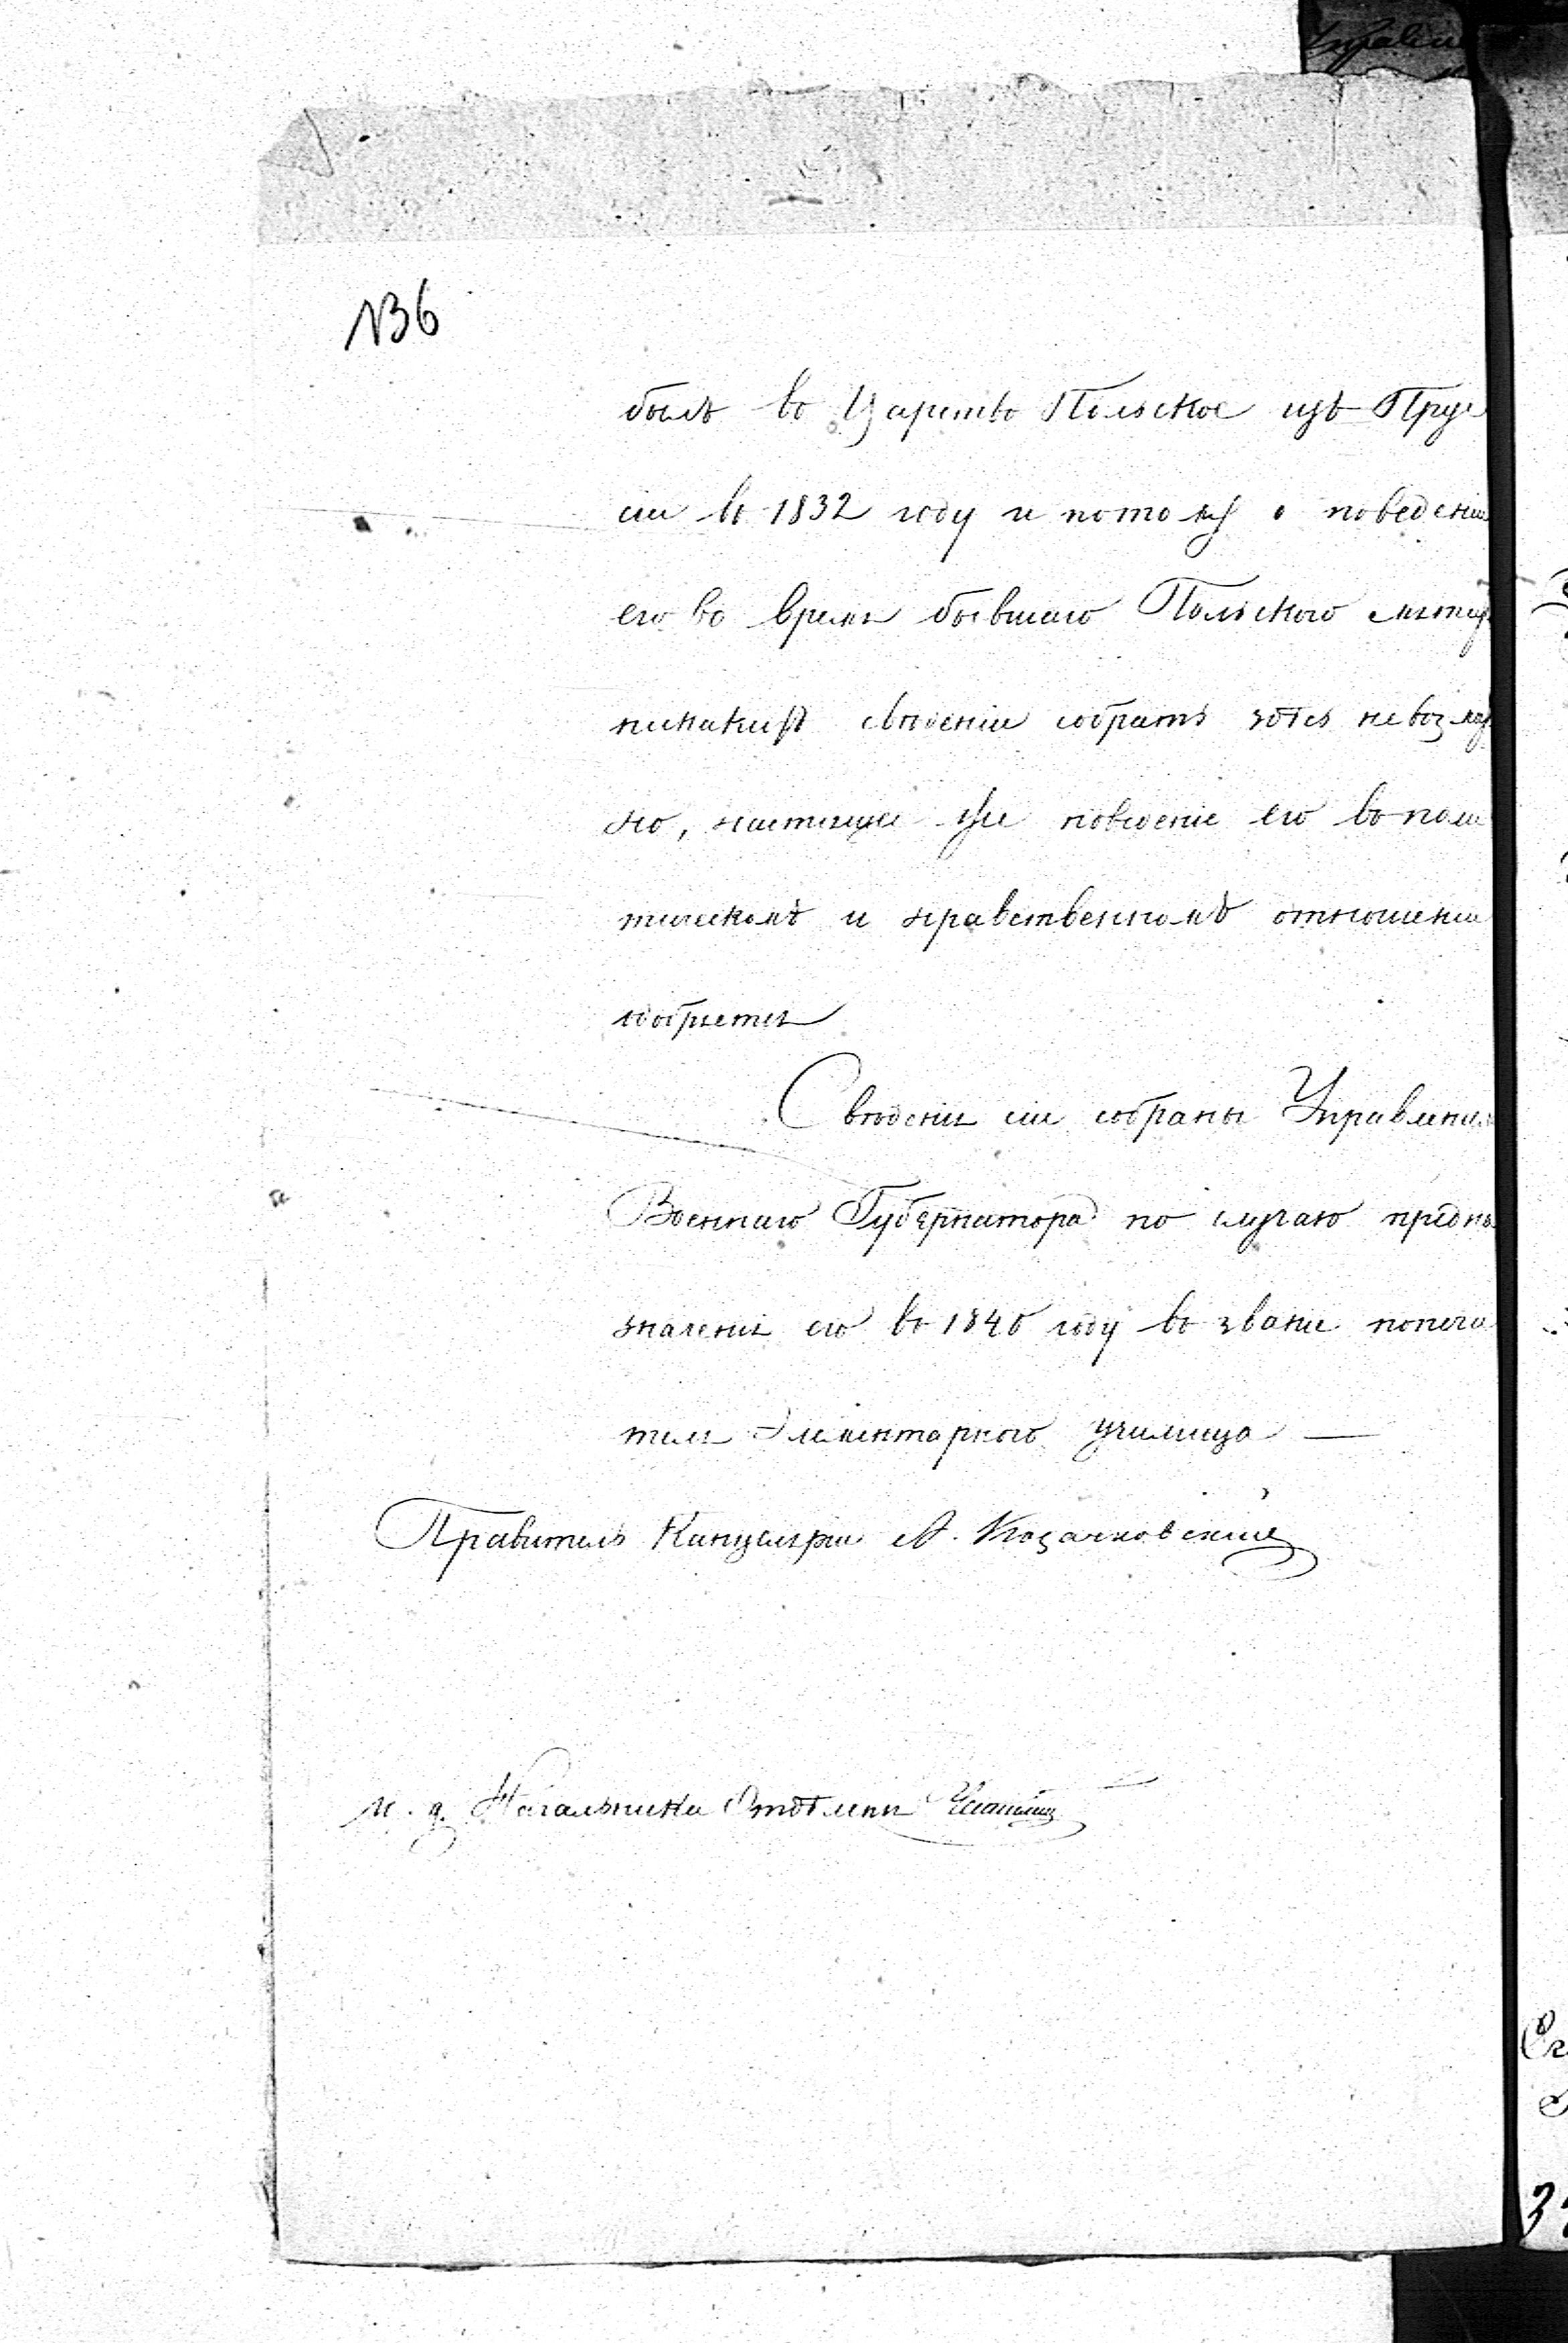 №36
былъ во Царство Польское изъ Прус
сіи во 1832 году и потому о поведеніи
его во время бывшаго Польскаго мятеж
никакихъ свѣденій собрать здѣсь невозмож
но, настоящее же поведеніе его во поли
тическомъ и нравственномъ отношеніи
одобряется
Свѣденія сіи собраны Управленіемъ
Военнаго Губернатора по случаю предна
значенія его во 1840 году во званіе попечи
теля Элементарнаго училища —
Правитель Канцеляріи А. Козачковскій
И. д. Начальника Отдѣленія